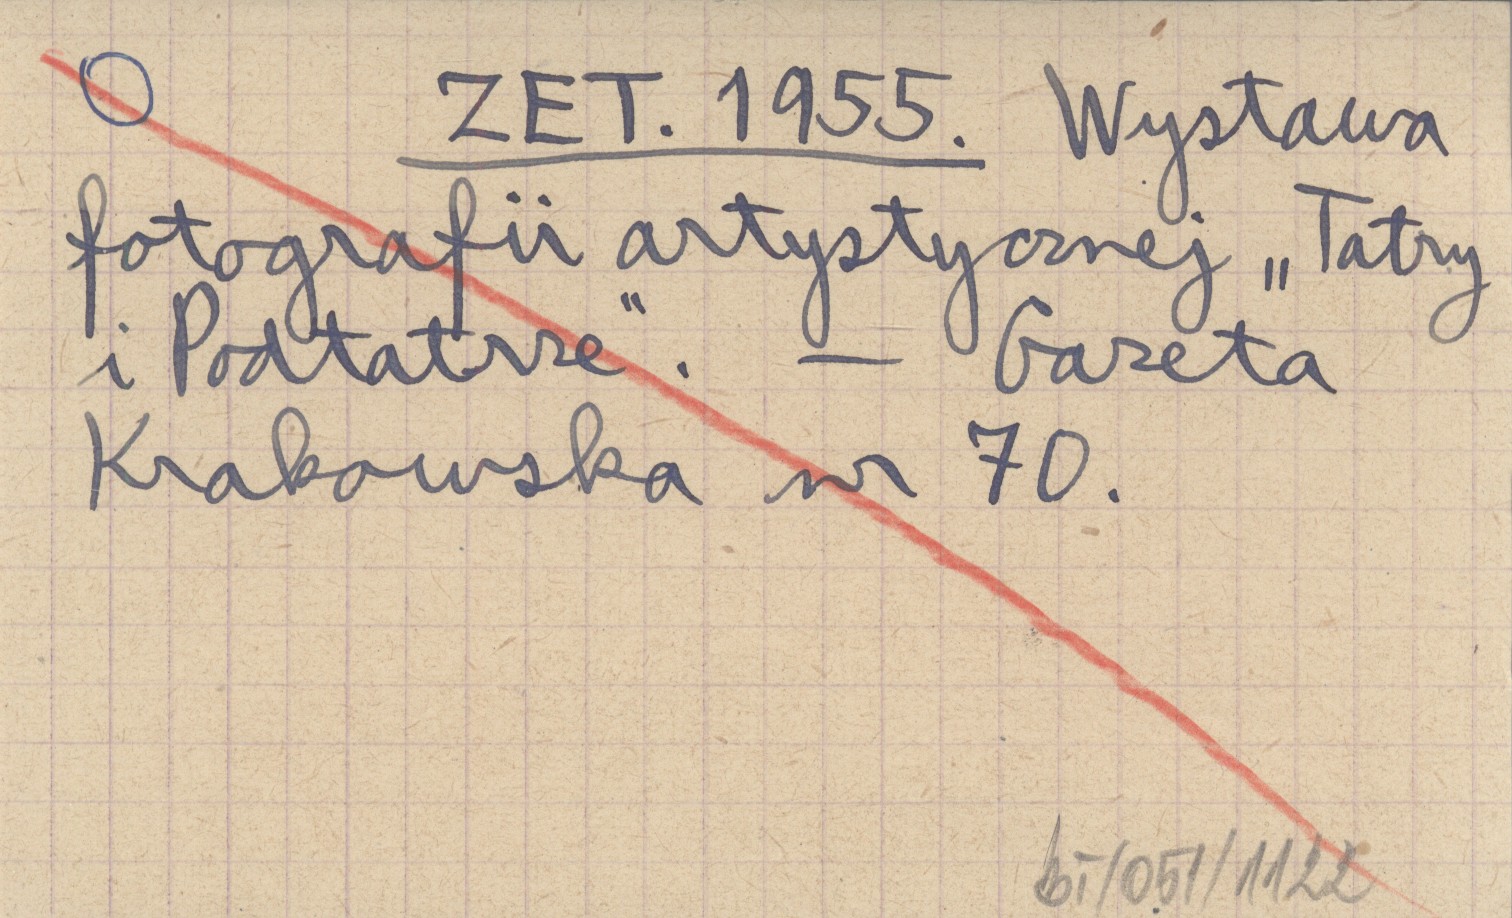 ZET. 1955. Wystawa
fotografii artystycznej „Tatry
i Podtatrze“. — Gazeta
Krakowska nr 70.
bī/051/1122